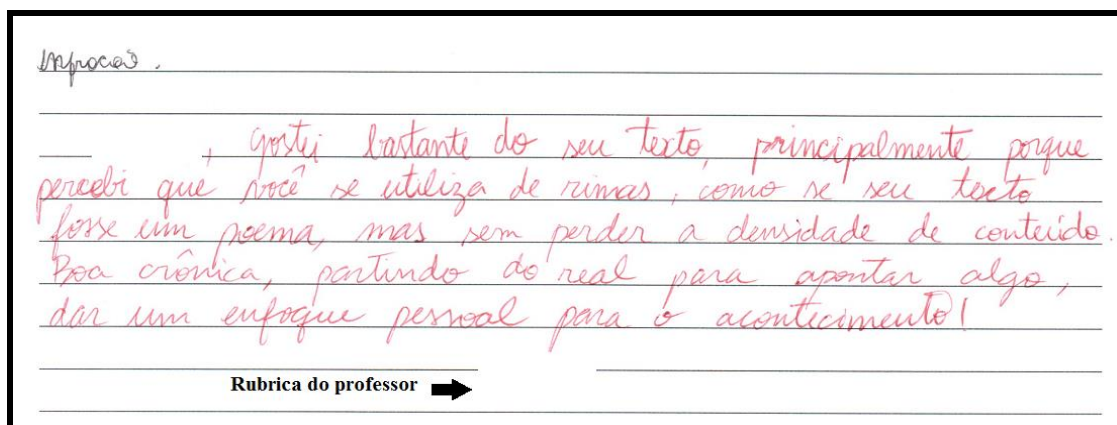 , gostei bastante do seu texto, principalmente porque
percebi que você se utiliza de rimas, como se seu texto
fosse um poema, mas sem perder a densidade de conteúdo.
Boa crônica, partindo do real para apontar algo,
dar um enfoque pessoal para o acontecimento!
Rubrica do professor